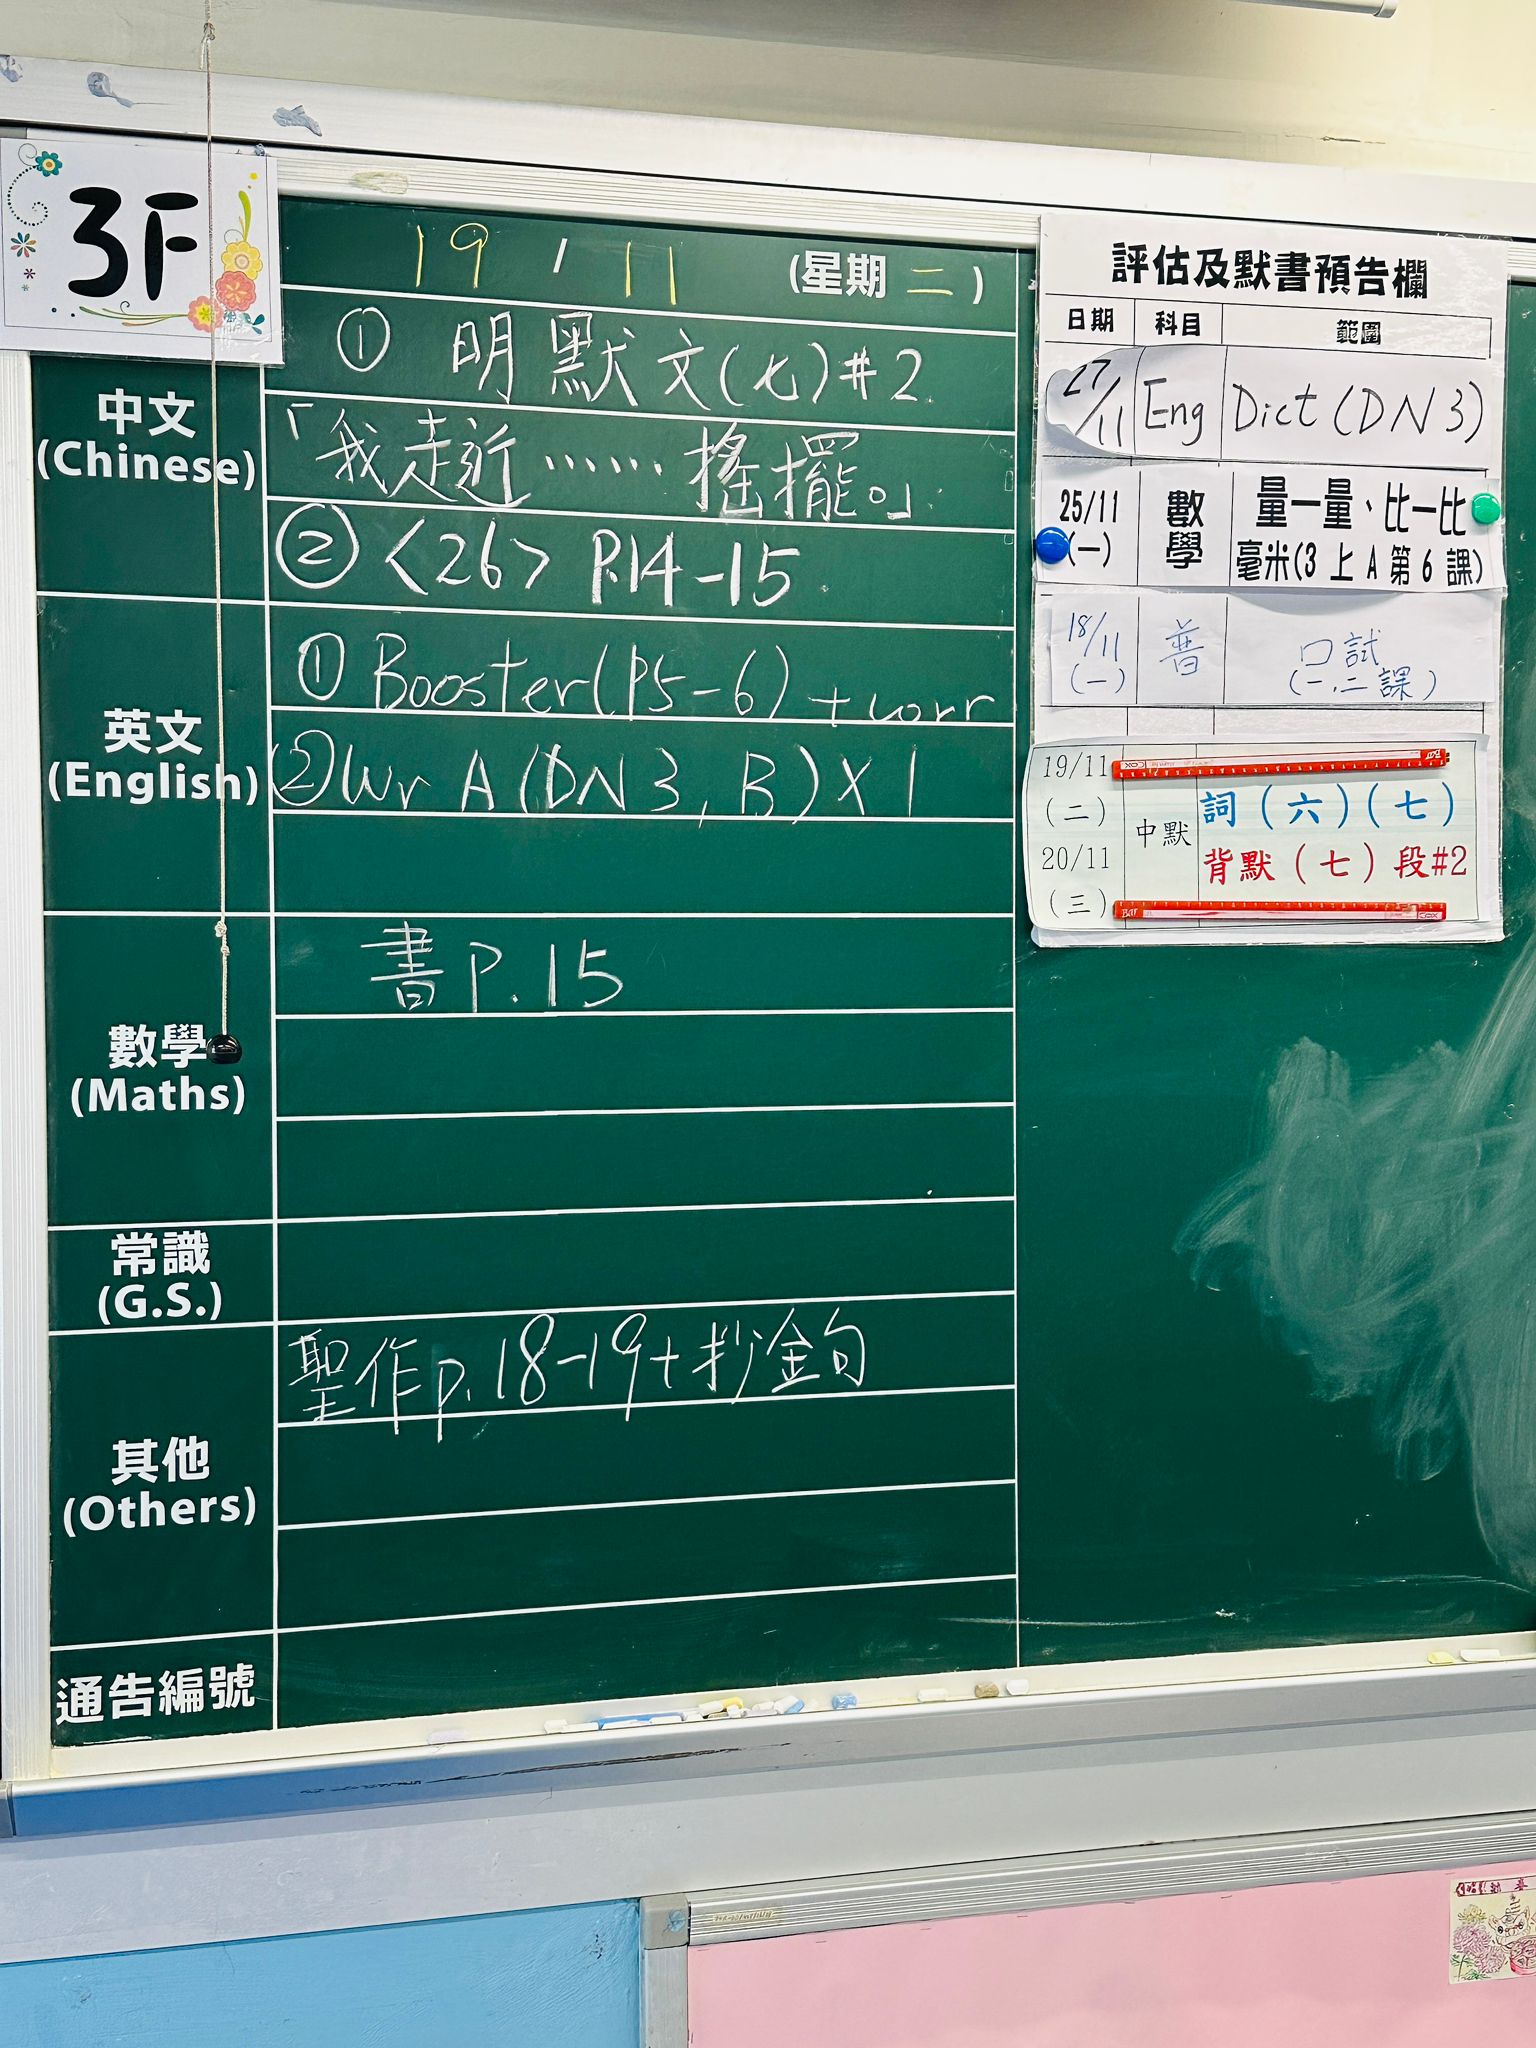 3F
19 / 11 (星期 二 )
中文
(Chinese)
① 明默文(七)#2
「我走近……搖擺。」
② <26> P.14-15
英文
(English)
① Booster(P5-6) + corr
② Wr A (DN 3, B) X 1
數學
(Maths)
書 P. 15
常識
(G.S.)
其他
(Others)
聖作p. 18-19+抄金句
通告編號
評估及默書預告欄
日期 科目 範圍
27/11 Eng Dict (DN 3)
25/11
(一)
數學
量一量、比一比
毫米(3 上 A 第 6 課)
18/11
(一)
普
口試
(一、二課)
19/11
(二)
20/11
(三)
中默
詞(六)(七)
背默(七)段#2